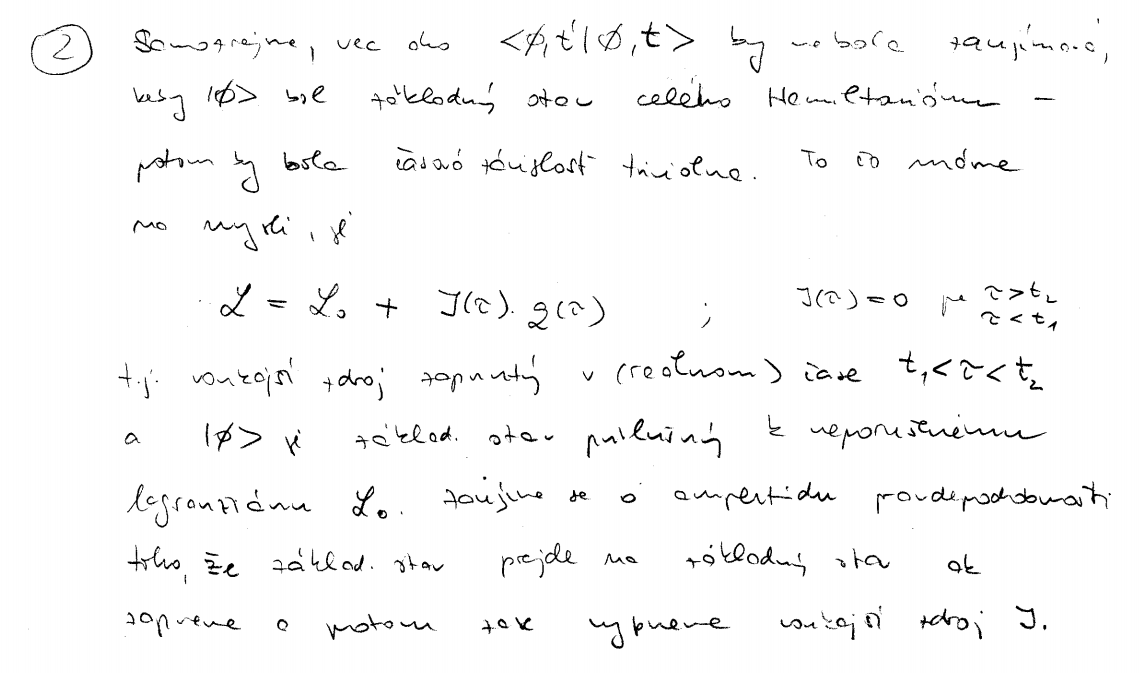 ② Samozrejme, vec ako <ø,t'|ø,t> by nebola zaujímavá,
keby |ø> bol základný stav celého Hamiltoniánu –
potom by bola časová závislosť triviálna. To čo máme
na mysli, je
L = L₀ + J(τ). q(τ) ; J(τ)=0 pre τ>t₂ τ<t₁
t.j. vonkajší zdroj zapnutý v (reálnom) čase t₁<τ<t₂
a |ø> je základ. stav príslušný k neporušenému
lagranžiánu L₀. zaujíma se o amplitúdu pravdepodobnosti
toho, že základ. stav prejde na základný stav ak
zapneme a potom zas vypneme vonkajší zdroj J.